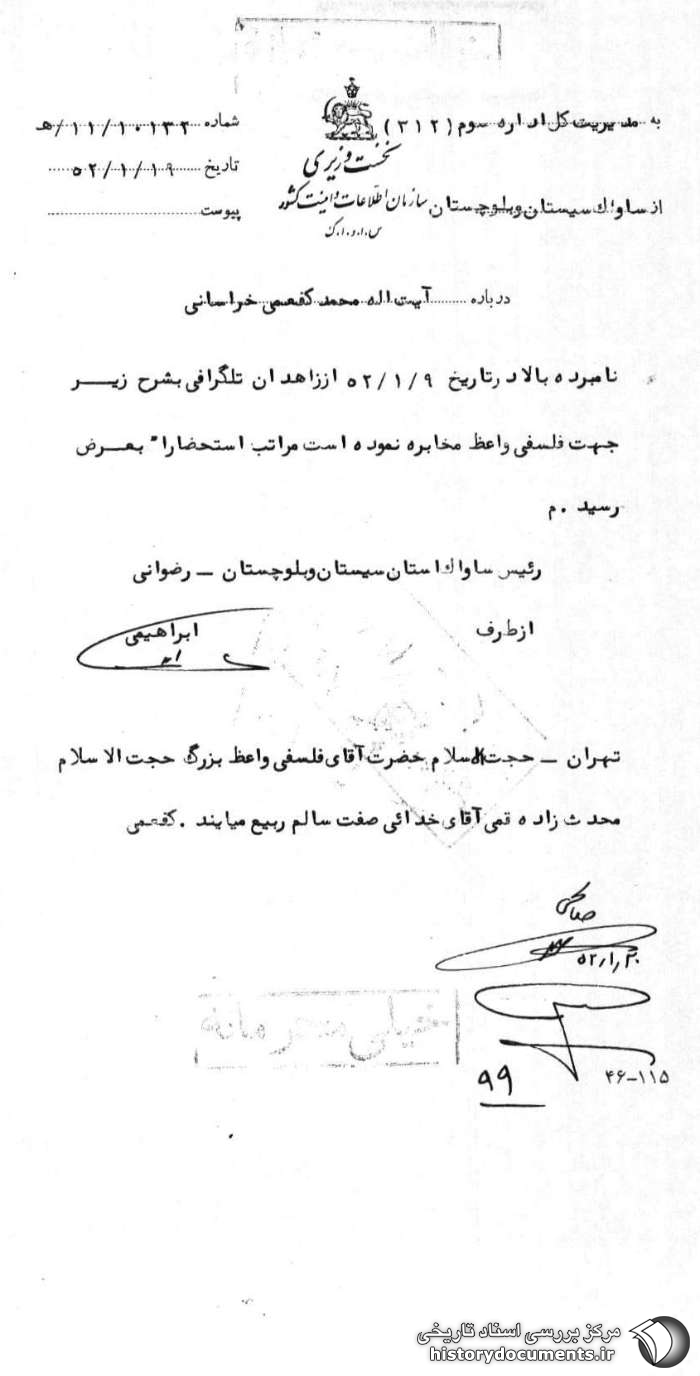 به مدیریت کل اداره سوم (۳۱۲)
شماره ۱۱/۱۰۱۳۲/هـ
نخست وزیری
تاریخ ۵۲/۱/۱۹
از ساواك سیستان و بلوچستان
سازمان اطلاعات و امنیت کشور
پیوست
س.ا.و.ا.ک
درباره آیت اله محمد کفعمی خراسانی
نامبرده بالا درتاریخ ۵۲/۱/۹ اززاهدان تلگرافی بشرح زیر
جهت فلسفی واعظ مخابره نموده است مراتب استحضارا" بعرض
رسید .م
رئیس ساواك استان سیستان وبلوچستان ـ رضوانی
ازطرف
ابراهیمی
تهران ـ حجت السلام حضرت آقای فلسفی واعظ بزرگ حجت الاسلام
محدث زاده قمی آقای خدائی صفت سالم ربیع میایند .کفعمی
صالحی
۵۲/۱/۲۰
۴۶-۱۱۵
۹۹
مرکز بررسی اسناد تاریخی
historydocuments.ir